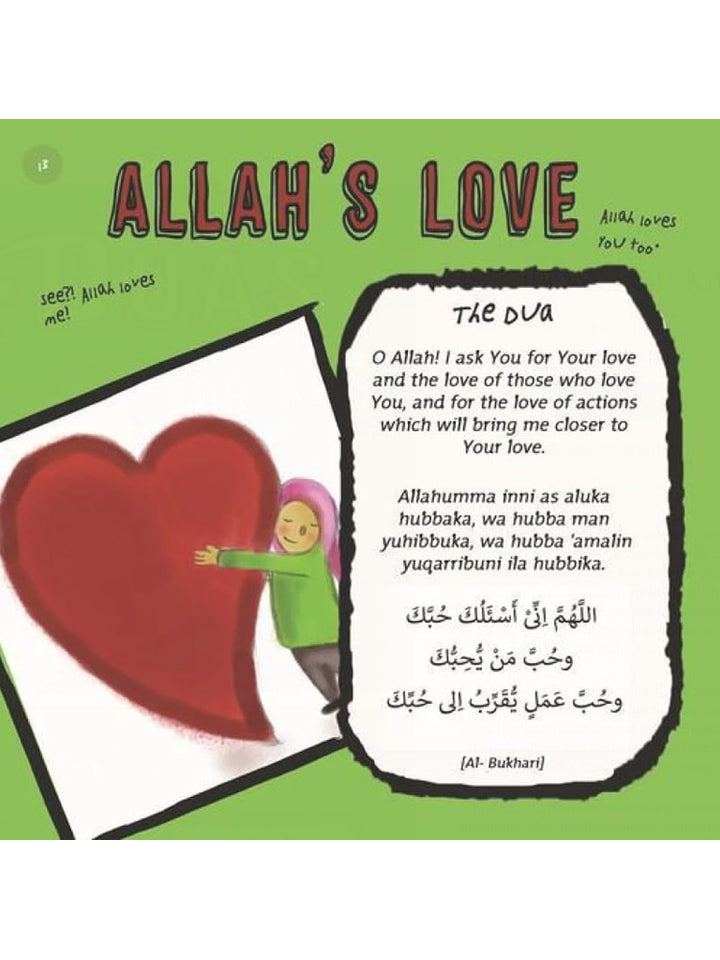 13
ALLAH'S LOVE
Allah loves
You too.
see?! Allah loves
me!
The Dua
O Allah! I ask You for Your love
and the love of those who love
You, and for the love of actions
which will bring me closer to
Your love.
Allahumma inni as aluka
hubbaka, wa hubba man
yuhibbuka, wa hubba 'amalin
yuqarribuni ila hubbika.
اللَّهُمَّ اِنِّیْ أَسْئَلُكَ حُبَّكَ
وحُبَّ مَنْ يُّحِبُّكَ
وحُبَّ عَمَلٍ يُّقَرِّبُ اِلى حُبِّكَ
[Al- Bukhari]